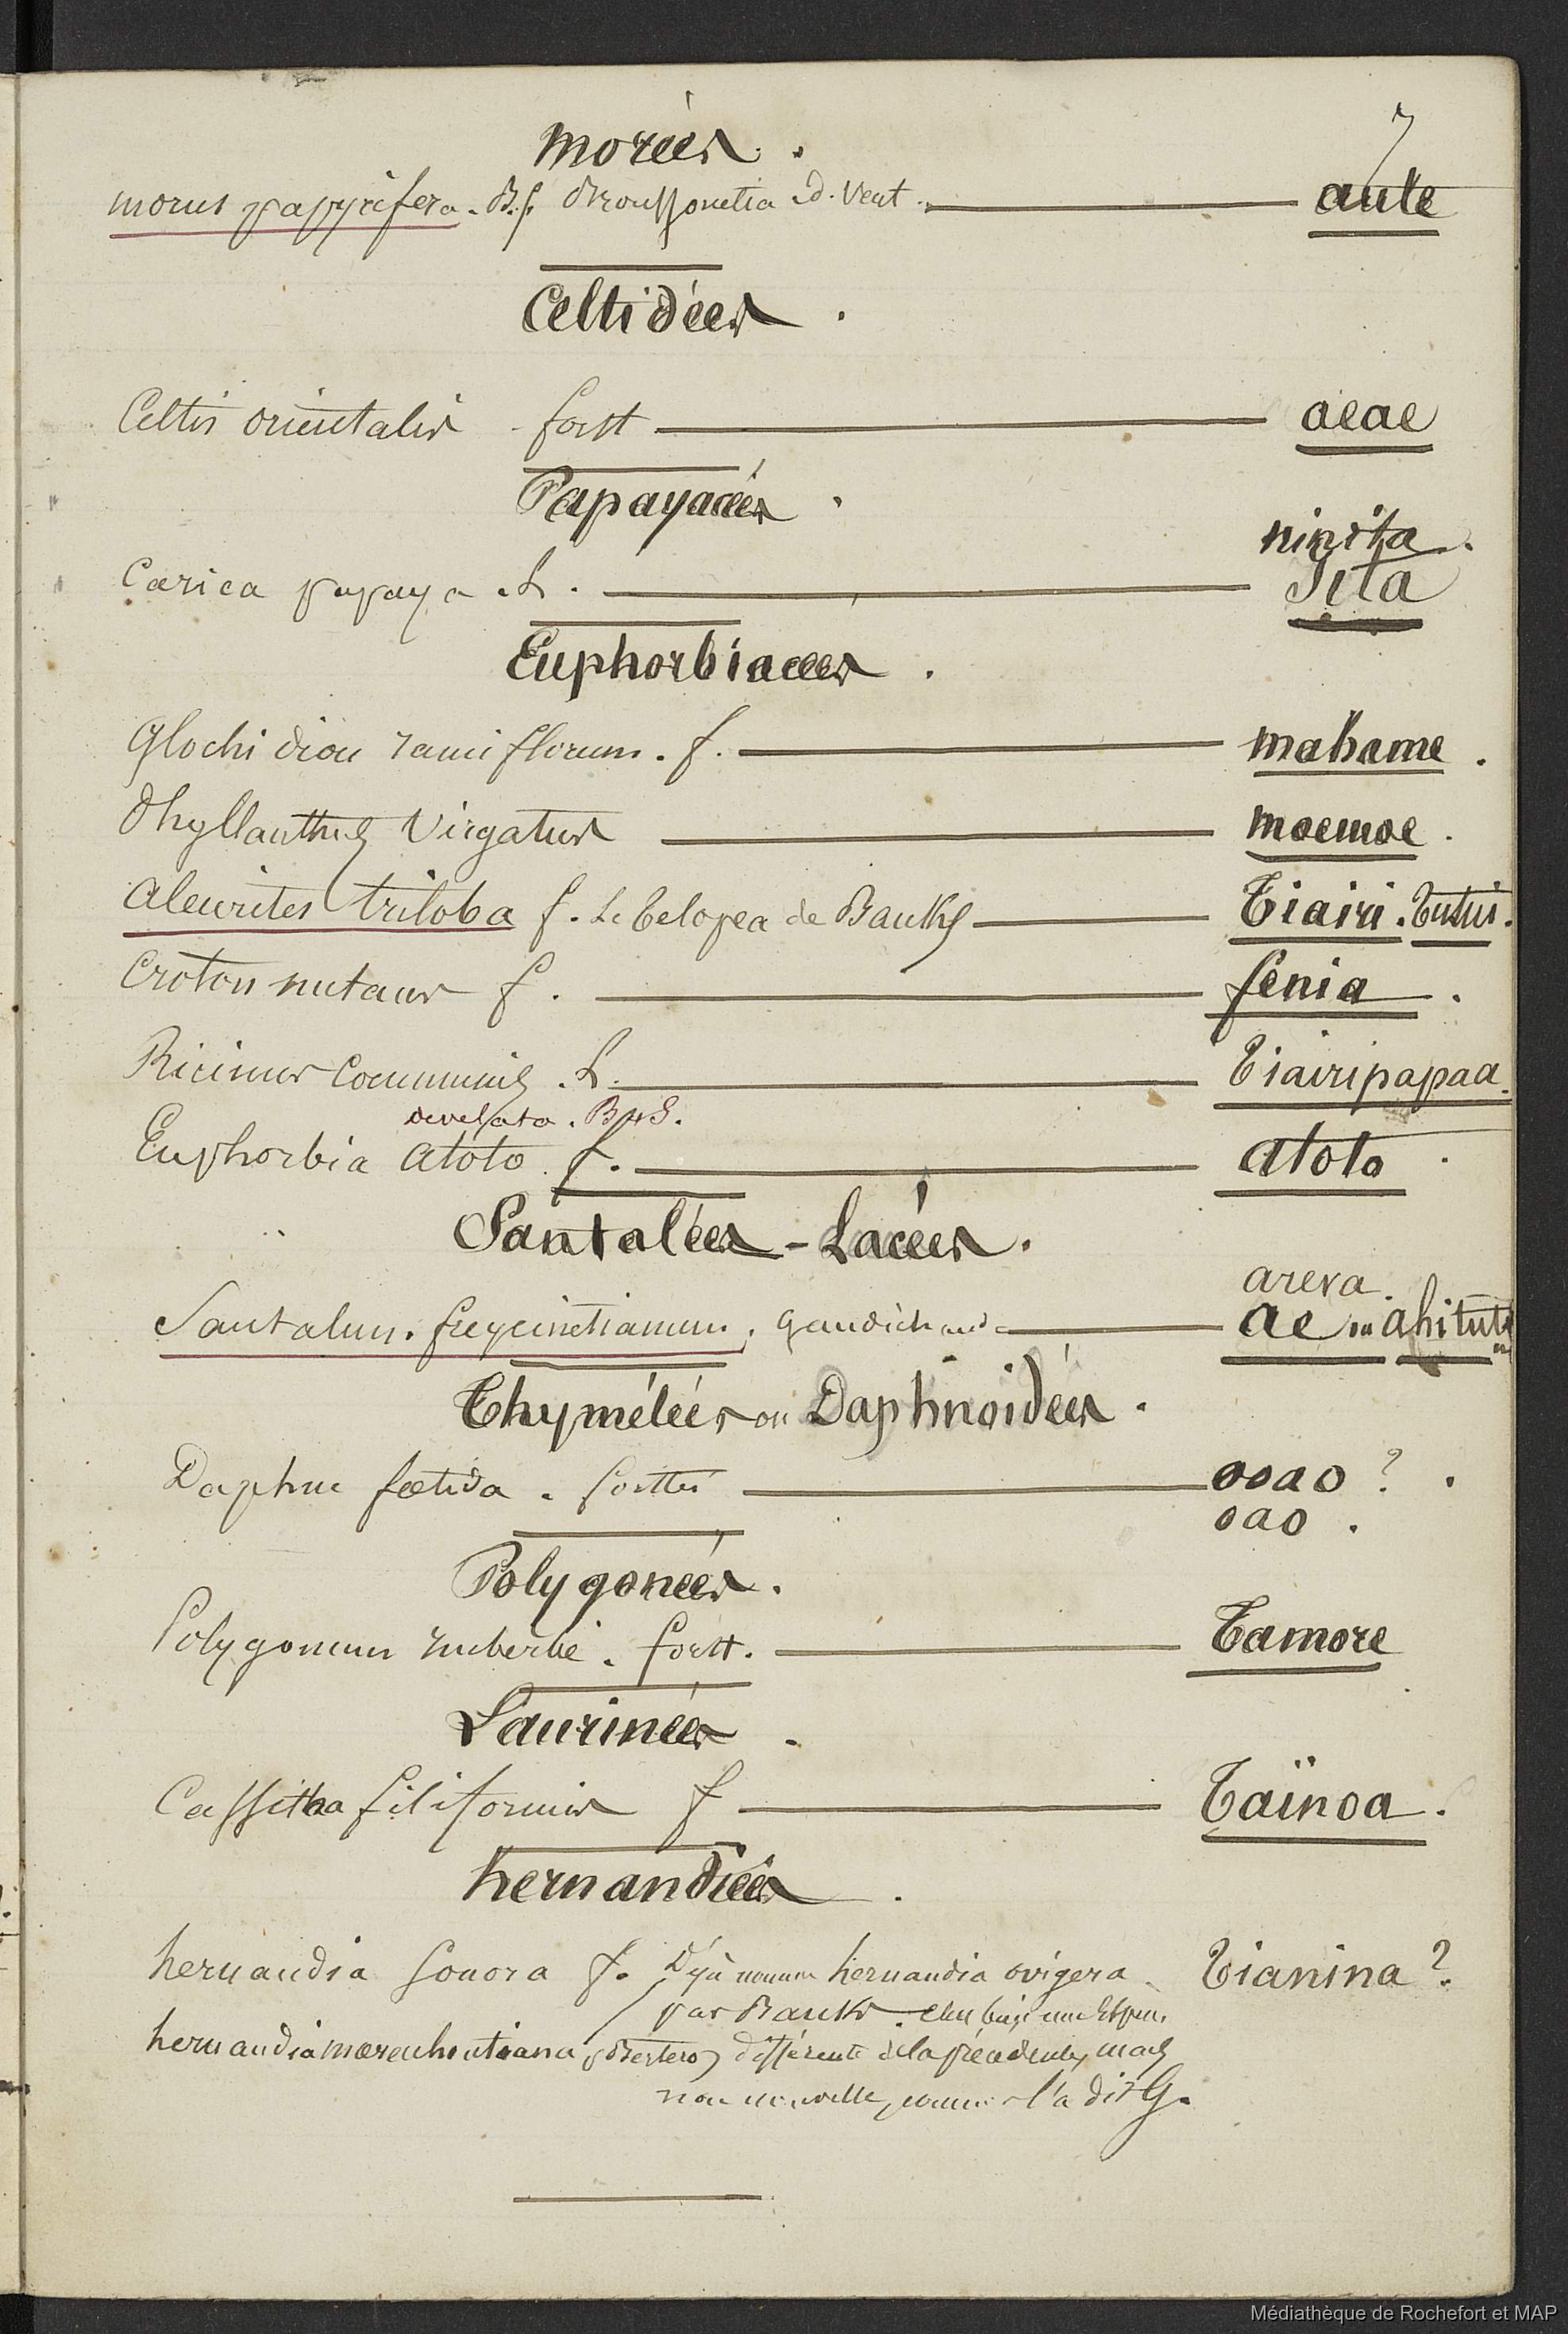 7
Morées.
morus papyrifera. B. f. Broussonetia id. Vent. aute
Celtidées.
Celtis orientalis forst aeae
Papayacées.
ninita.
Carica papaya. L. Iita
Euphorbiacées.
Glochidion ramiflorum. f. mahame.
Phyllanthus Virgatus moemoe.
aleurites triloba f. Le Telopea de Banks Tiairi. Tutui.
Croton nutans f. fenia.
Ricinus Communis. L. Tiairipapaa.
develata. B4S.
Euphorbia atoto f. atoto.
Santalées-Lacées.
areva.
Santalum. freycinetianum. Gaudichaud ae ou ahitutu
Thymélées ou Daphnoidées.
Daphne fœtida. Forster ooao?.
oao.
Polygonées.
Polygonum imberbe. Forst. Tamore
Laurinées.
Cassitha filiformis f Taïnoa.
hernandiées.
hernandia Sonora f. Déjà nommé hernandia ovigera Tianina?
par Banks. c'en est une Espèce
hernandia mærenhoutiana (Bertero) différente de la précédente, mais
non nouvelle, comme l'a dit G.
Médiathèque de Rochefort et MAP